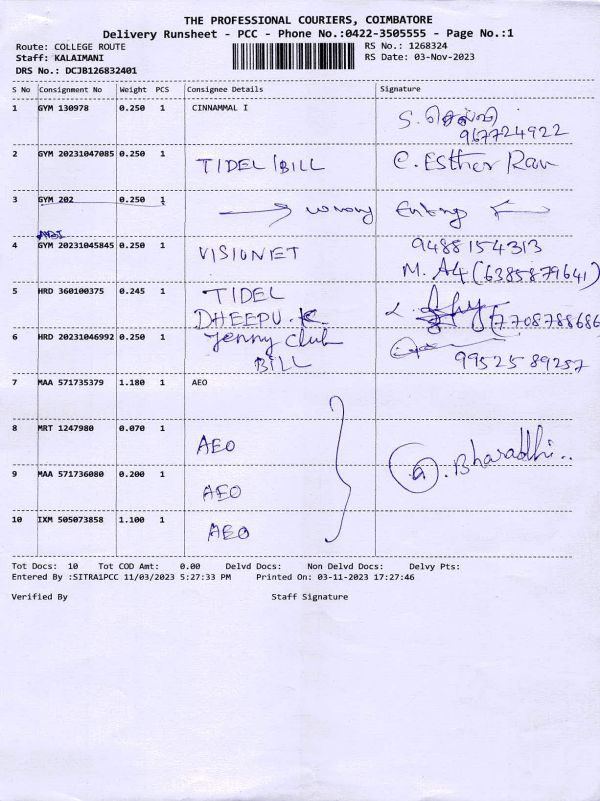 THE PROFESSIONAL COURIERS, COIMBATORE
Delivery Runsheet - PCC - Phone No.:0422-3505555 - Page No.:1
Route: COLLEGE ROUTE RS No.: 1268324
Staff: KALAIMANI RS Date: 03-Nov-2023
DRS No.: DCJB126832401
S No Consignment No Weight PCS Consignee Details Signature
1 GYM 130978 0.250 1 CINNAMMAL I S. செல்வி
967724922
2 GYM 20231047085 0.250 1 TIDEL/BILL C. Esther Rani
3 GYM 202 0.250 1 → wrong Entry ←
4 GYM 20231045845 0.250 1 VISIONET 9488154313
M. (6385879641)
5 HRD 360100375 0.245 1 TIDEL
DHEEPU.K (7708788686
6 HRD 20231046992 0.250 1 Jenny Club
BILL 9952589257
7 MAA 571735379 1.180 1 AEO
8 MRT 1247980 0.070 1 AEO
9 MAA 571736080 0.200 1 AEO Bharadhi..
10 IXM 505073858 1.100 1 AEO
Tot Docs: 10 Tot COD Amt: 0.00 Delvd Docs: Non Delvd Docs: Delvy Pts:
Entered By :SITRA1PCC 11/03/2023 5:27:33 PM Printed On: 03-11-2023 17:27:46
Verified By Staff Signature